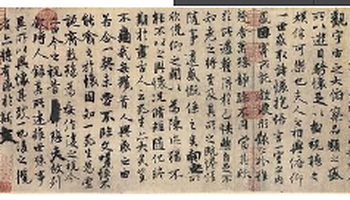 觀宇宙之大俯察品類之盛
所以遊目騁懷足以極視聽之
娛信可樂也夫人之相與俯仰
一世或取諸懷抱悟言一室之內
或因寄所託放浪形骸之外雖
趣舍萬殊靜躁不同當其欣
於所遇蹔得於己怏然自足不
知老之將至及其所之既惓情
隨事遷感慨係之矣向之所
欣俛仰之閒以為陳迹猶不
能不以之興懷況脩短隨化終
期於盡古人云死生亦大矣豈
不痛哉每攬昔人興感之由
若合一契未嘗不臨文嗟悼不
能喻之於懷固知一死生為虛
誕齊彭殤為妄作後之視今
亦由今之視昔悲夫故列
敘時人錄其所述雖世殊事
異所以興懷其致一也後之攬
者亦將有感於斯文